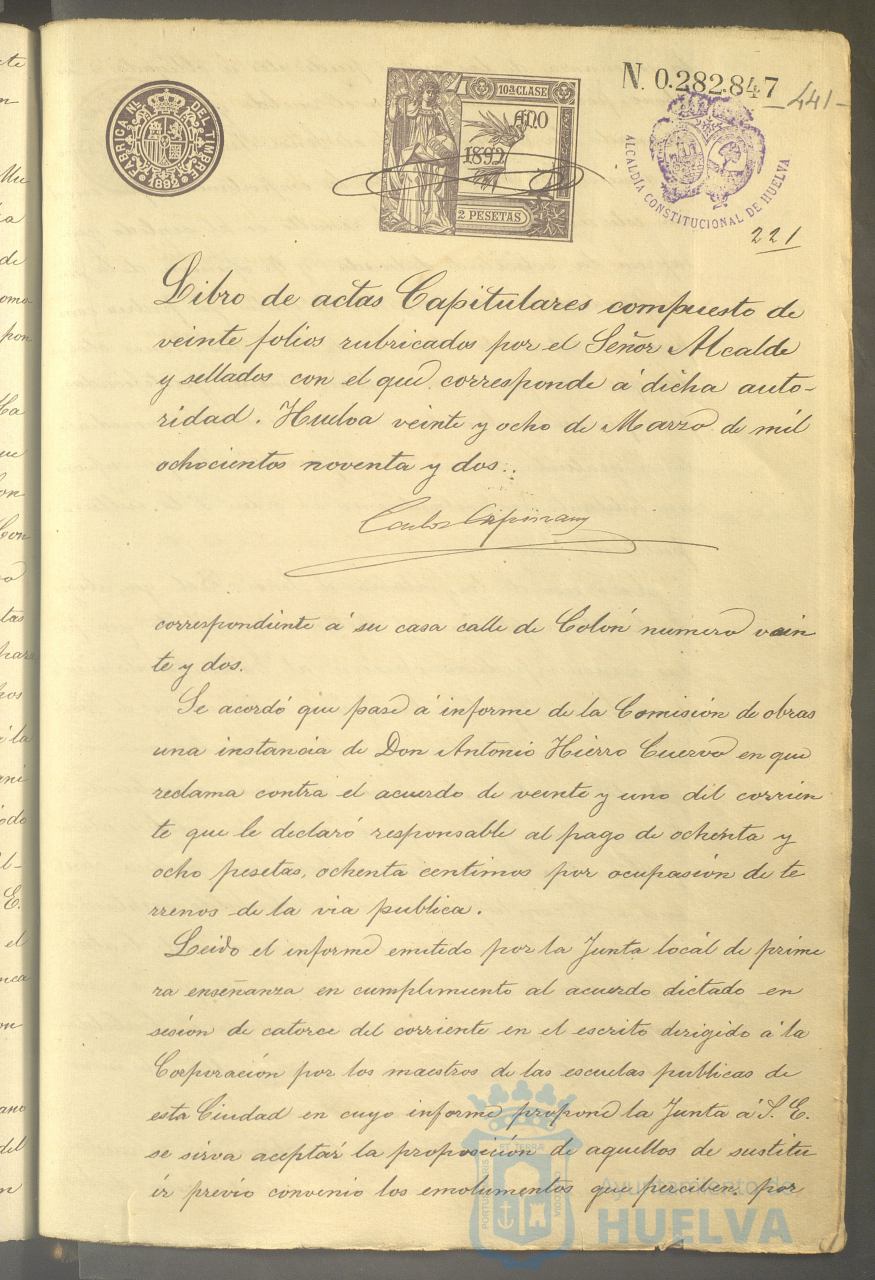 FABRICA NL. DEL TIMBRE
1892
10ª CLASE
AÑO
1892
2 PESETAS
N. 0.282.847
441
ALCALDÍA CONSTITUCIONAL DE HUELVA
221
Libro de actas Capitulares compuesto de
veinte folios rubricados por el Señor Alcalde
y sellados con el que corresponde á dicha auto-
ridad. Huelva veinte y ocho de Marzo de mil
ochocientos noventa y dos..
Carlos
correspondiente á su casa calle de Colón numero vein
te y dos.
Se acordó que pase á informe de la Comisión de obras
una instancia de Don Antonio Hierro Cuervo en que
reclama contra el acuerdo de veinte y uno del corrien
te que le declaró responsable al pago de ochenta y
ocho pesetas, ochenta centimos por ocupasión de te
rrenos de la via publica.
Leido el informe emitido por la Junta local de prime
ra enseñanza en cumplimiento al acuerdo dictado en
sesion de catorce del corriente en el escrito dirigido á la
Corporación por los maestros de las escuelas publicas de
esta Ciudad en cuyo informe propone la Junta á S. E.
se sirva aceptar la proposición de aquellos de sustitu
ir previo convenio los emolumentos que perciben por
Ayuntamiento de
HUELVA